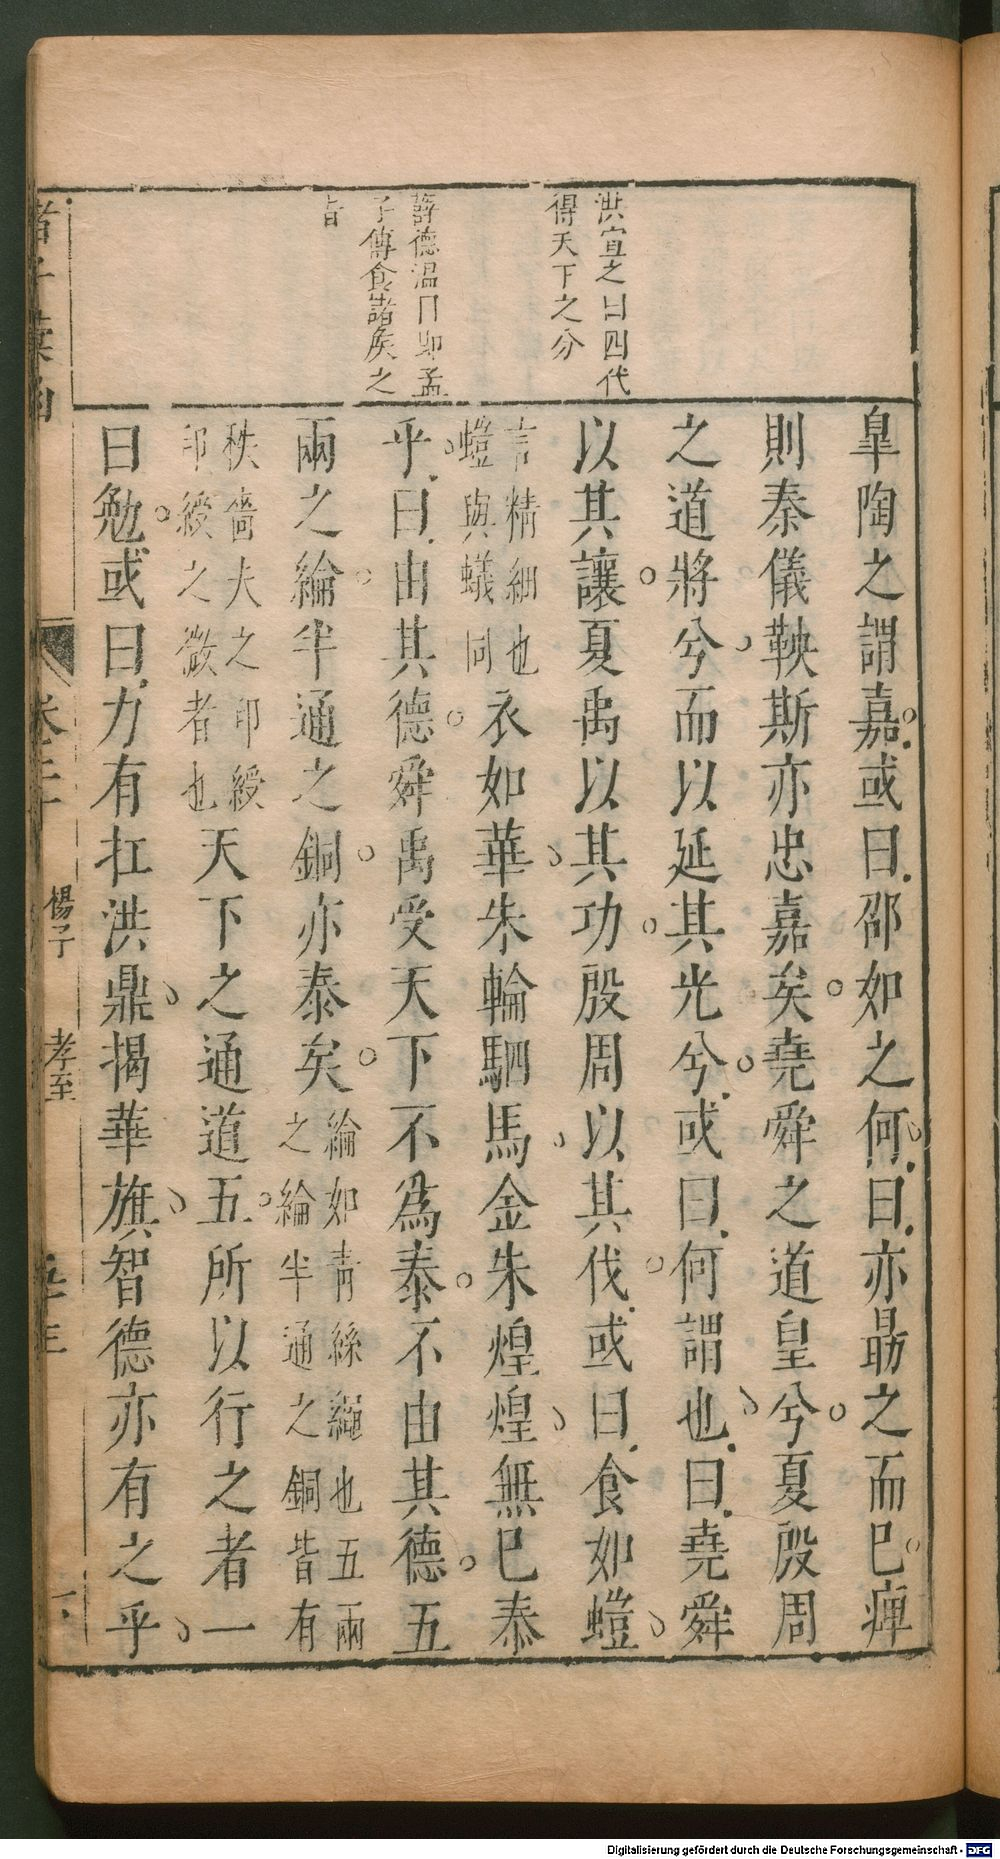 洪宣之曰四代
得天下之分
薛德溫曰即孟
子傳食諸矦之
旨
皐陶之謂嘉或曰卲如之何曰亦朂之而巳痺
則秦儀鞅斯亦忠嘉矣堯舜之道皇兮夏殷周
之道將兮而以延其光兮或曰何謂也曰堯舜
以其讓夏禹以其功殷周以其伐或曰食如螘
言精細也
螘與蟻同
衣如華朱輪駟馬金朱煌煌無巳泰
乎曰由其德舜禹受天下不爲泰不由其德五
兩之綸半通之銅亦泰矣
綸如青絲繩也五兩
之綸半通之銅皆有
秩嗇夫之印綬
印綬之微者也
天下之通道五所以行之者一
曰勉或曰力有扛洪鼎揭華旗智德亦有之乎
楊子
孝至
Digitalisierung gefördert durch die Deutsche Forschungsgemeinschaft - DFG